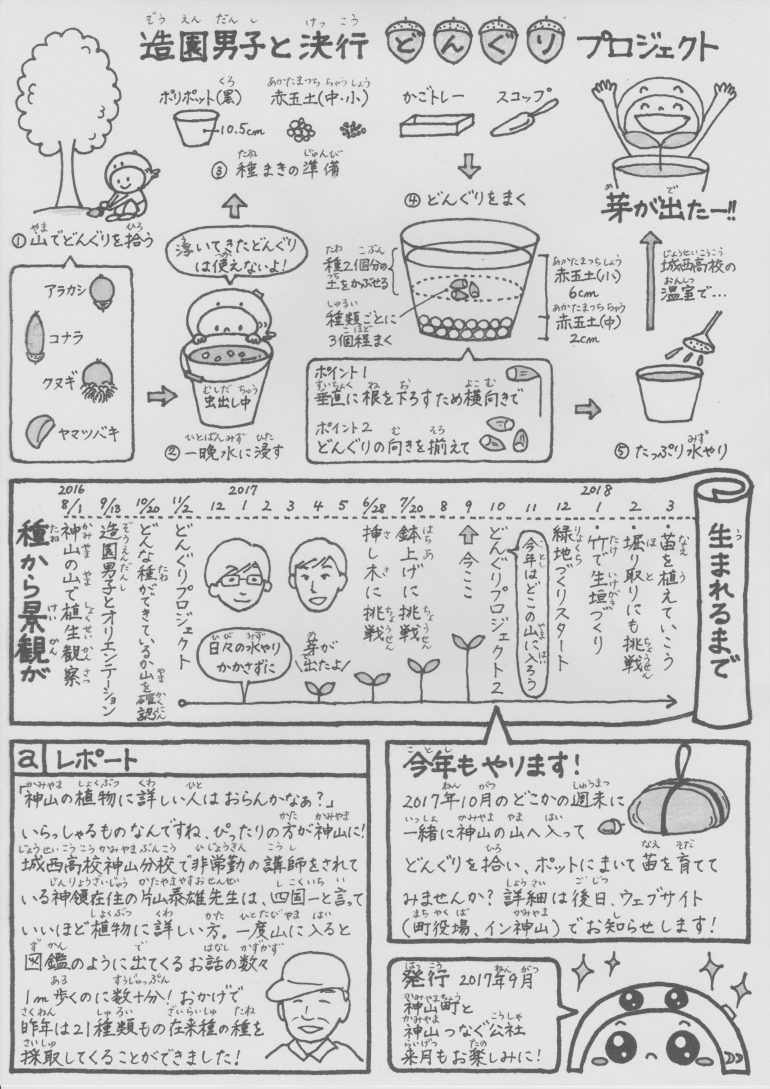 造園男子と決行 どんぐりプロジェクト
ポリポット(黒)
10.5cm
赤玉土(中・小)
かごトレー
スコップ
③種まきの準備
①山でどんぐりを拾う
アラカシ
コナラ
クヌギ
ヤマツバキ
浮いてきたどんぐり
は使えないよ!
虫出し中
②一晩水に浸す
④どんぐりをまく
種2個分の
土をかぶせる
種類ごとに
3個程まく
赤玉土(小)
6cm
赤玉土(中)
2cm
ポイント1
垂直に根を下ろすため横向きで
ポイント2
どんぐりの向きを揃えて
⑤たっぷり水やり
城西高校の
温室で…
芽が出たー!!
種から景観が
生まれるまで
2016
8/1
神山の山で植生観察
9/13
造園男子とオリエンテーション
10/20
どんな種ができているか山を確認
11/2
どんぐりプロジェクト
12
2017
1
2
3
4
5
日々の水やり
かかさずに
芽が
出たよ
6/28
挿し木に挑戦
7/20
鉢上げに挑戦
8
9
今ここ
10
どんぐりプロジェクト2
今年はどこの山に入ろう
11
12
緑地づくりスタート
2018
1
・竹で生垣づくり
2
・堀り取りにも挑戦
3
・苗を植えていこう
a レポート
「神山の植物に詳しい人はおらんかなぁ?」
いらっしゃるものなんですね、ぴったりの方が神山に!
城西高校神山分校で非常勤の講師をされて
いる神領在住の片山泰雄先生は、四国一と言って
いいほど植物に詳しい方。一度山に入ると
図鑑のように出てくるお話の数々
1m歩くのに数十分! おかげで
昨年は21種類もの在来種の種を
採取してくることができました!
今年もやります!
2017年10月のどこかの週末に
一緒に神山の山へ入って
どんぐりを拾い、ポットにまいて苗を育てて
みませんか? 詳細は後日、ウェブサイト
(町役場、イン神山)でお知らせします!
発行 2017年9月
神山町と
神山つなぐ公社
来月もお楽しみに!